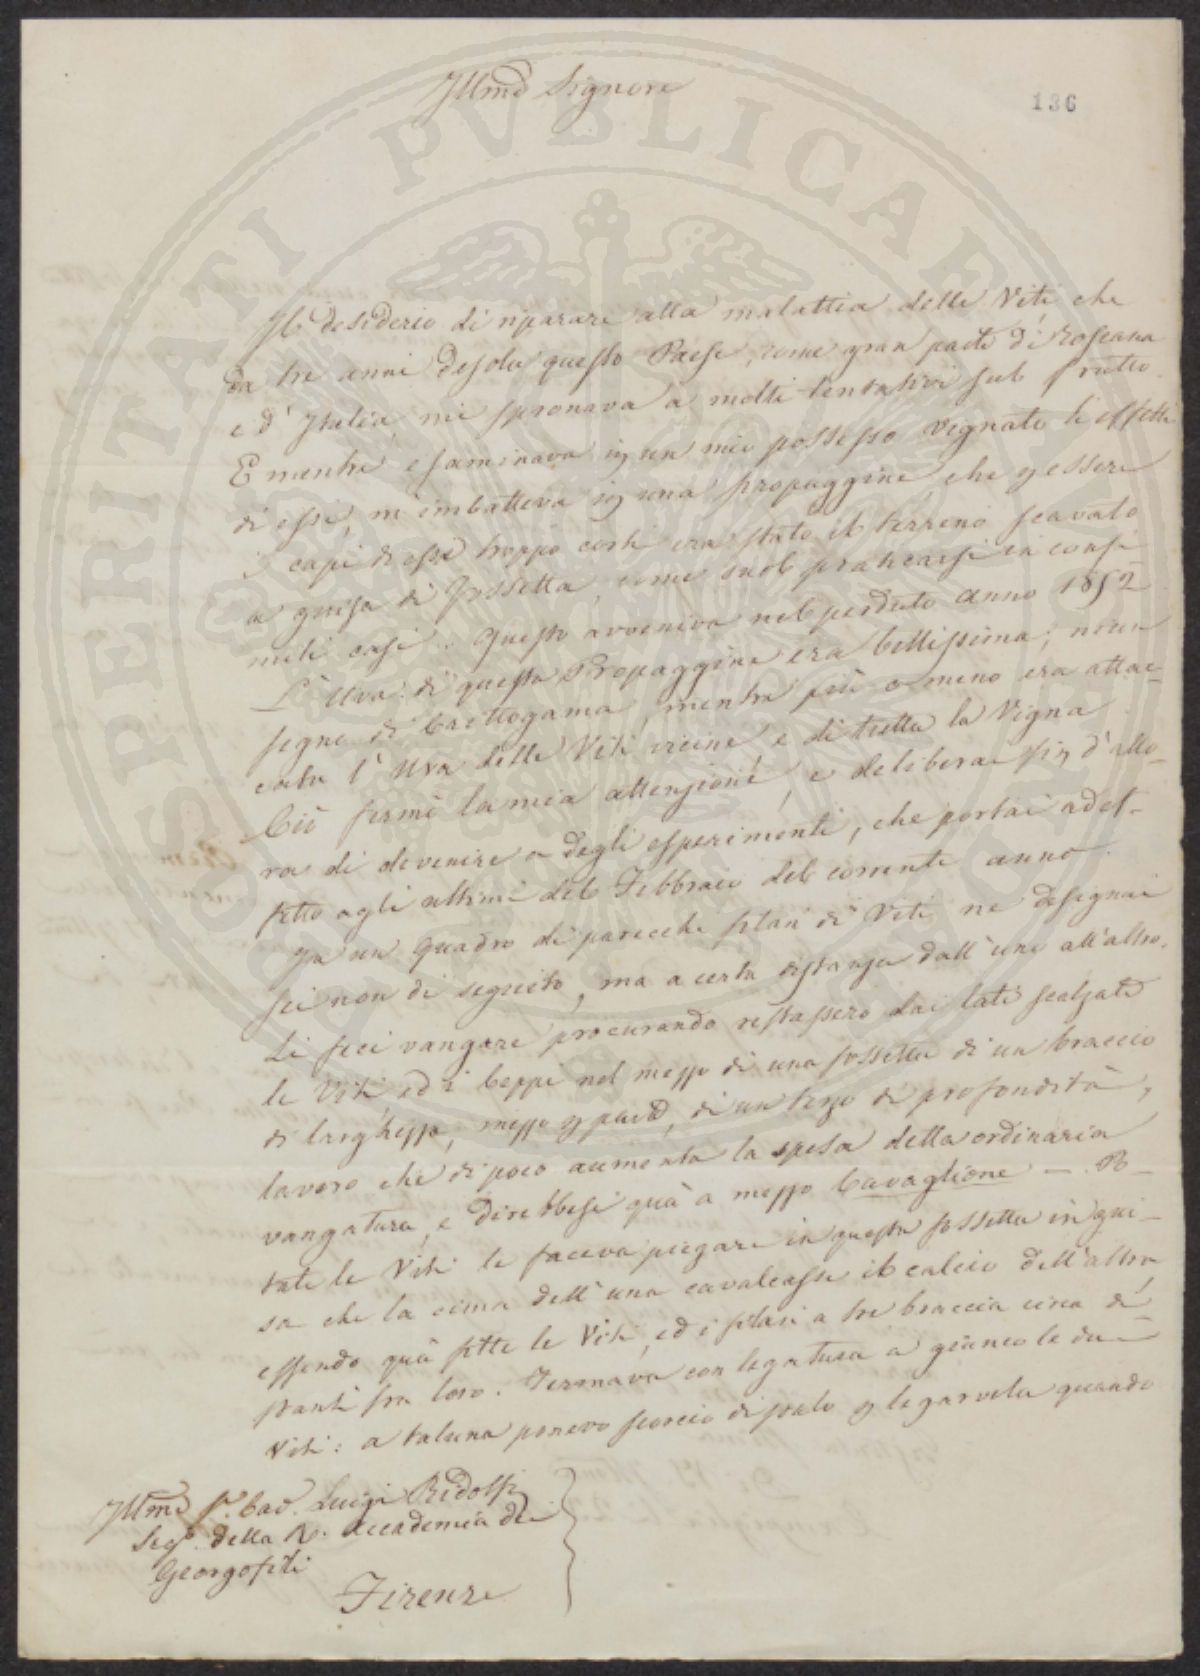 Illmo Signore
136
Il desiderio di riparare alla malattia delle Viti che
da tre anni desola questo Paese, come gran parte di Toscana
e d'Italia, mi spronava a molti tentativi sul frutto.
E mentre esaminava in un mio possesso vignato li effetti
di essi, m'imbatteva in una propaggine che p essere
i capi di essa troppo corti era stato il terreno scavato
a guisa di fossetta, come suol praticarsi in consi
mili casi. Questo avveniva nel perduto anno 1852
L'Uva di questa Propaggine era bellissima; niun
segno di Crittogama, mentre più o meno era attac-
cata l'Uva delle Viti vicine e di tutta la Vigna.
Ciò fermò la mia attenzione, e deliberai fin d'allo-
ra di devenire a degli esperimenti, che portai ad ef-
fetto agli ultimi del Febbraio del corrente anno.
In un quadro di parecchi filari di Viti ne designai
sei non di seguito, ma a certa distanza dall'uno all'altro.
Li feci vangare procurando restassero dai lati scalzate
le Viti ed i Ceppi nel mezzo di una fossetta di un braccio
di larghezza, mezzo p parte, di un terzo di profondità,
lavoro che di poco aumenta la spesa della ordinaria
vangatura, e direbbesi quà a mezzo Cavaglione — . Po-
tate le Viti le faceva piegare in questa fossetta in gui-
sa che la cima dell'una cavalcasse il calcio dell'altra
essendo quà fitte le Viti, ed i filari a tre braccia circa di-
stanti fra loro. Fermava con legatura a giunco le due
Viti: a taluna ponevo scorcio di palo p legarvela quando
Illmo Sr. Cav. Luigi Ridolfi
Sego. della R. Accademia dei
Georgofili
Firenze